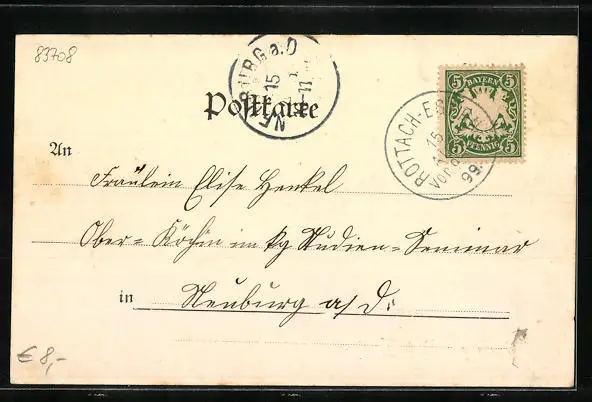 83708
NEUBURG a.D
15
11
Postkarte
5 BAYERN 5
5 PFENNIG 5
ROTTACH-E
15
Vor
99.
An
Fräulein Elise Henkel
Ober-Köchin im kg Studien-Seminar
in Neuburg a/d.
€ 8,-